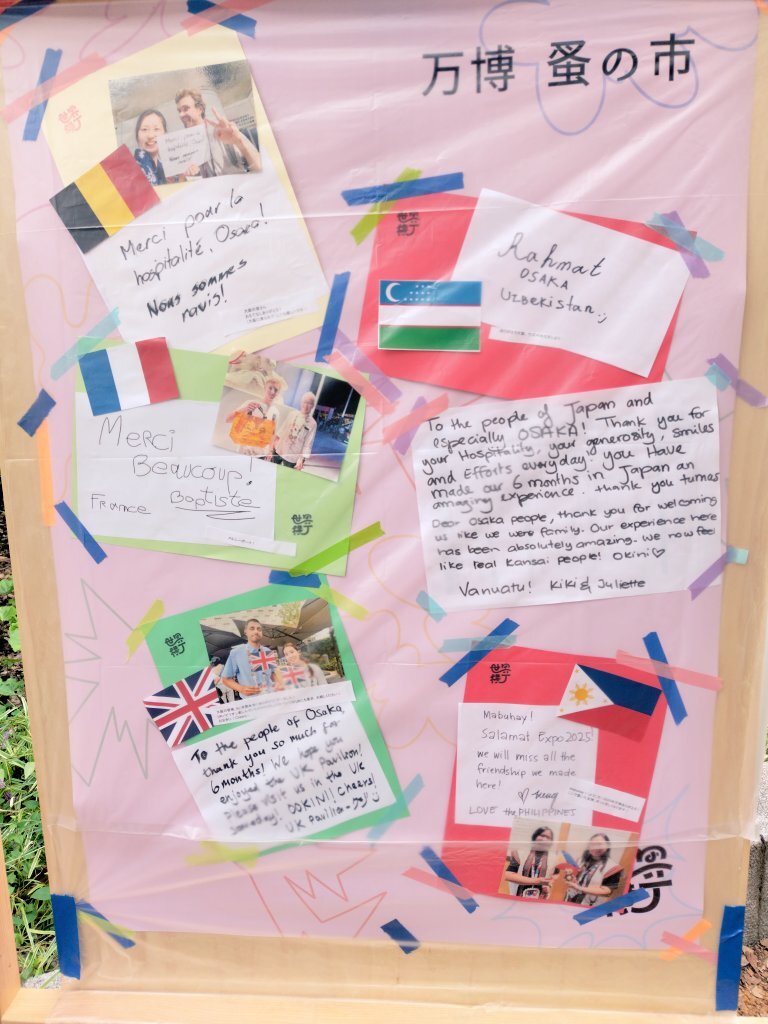 万博 蚤の市
世界横丁
Merci pour la
hospitalité, Osaka!
Nous sommes
ravis!
世界横丁
Rahmat
OSAKA
Uzbekistan :)
Merci
Beaucoup!
France Baptiste
世界横丁
To the people of Japan and
especially OSAKA! Thank you for
your Hospitality, your generosity, smiles
and Efforts everyday. you Have
made our 6 months in Japan an
amazing experience. thank you tumas
Dear Osaka people, thank you for welcoming
us like we were family. Our experience here
has been absolutely amazing. We now feel
like real Kansai people! Okini♡
Vanuatu! Kiki & Juliette
世界横丁
To the people of Osaka,
thank you so much for
6 months! We hope you
enjoyed the UK Pavilion!
Please visit us in the UK
someday! OOKINI! Cheers!
UK Pavilion - Jay :)
世界横丁
Mabuhay!
Salamat Expo 2025!
we will miss all the
friendship we made
here!
LOVE the PHILIPPINES